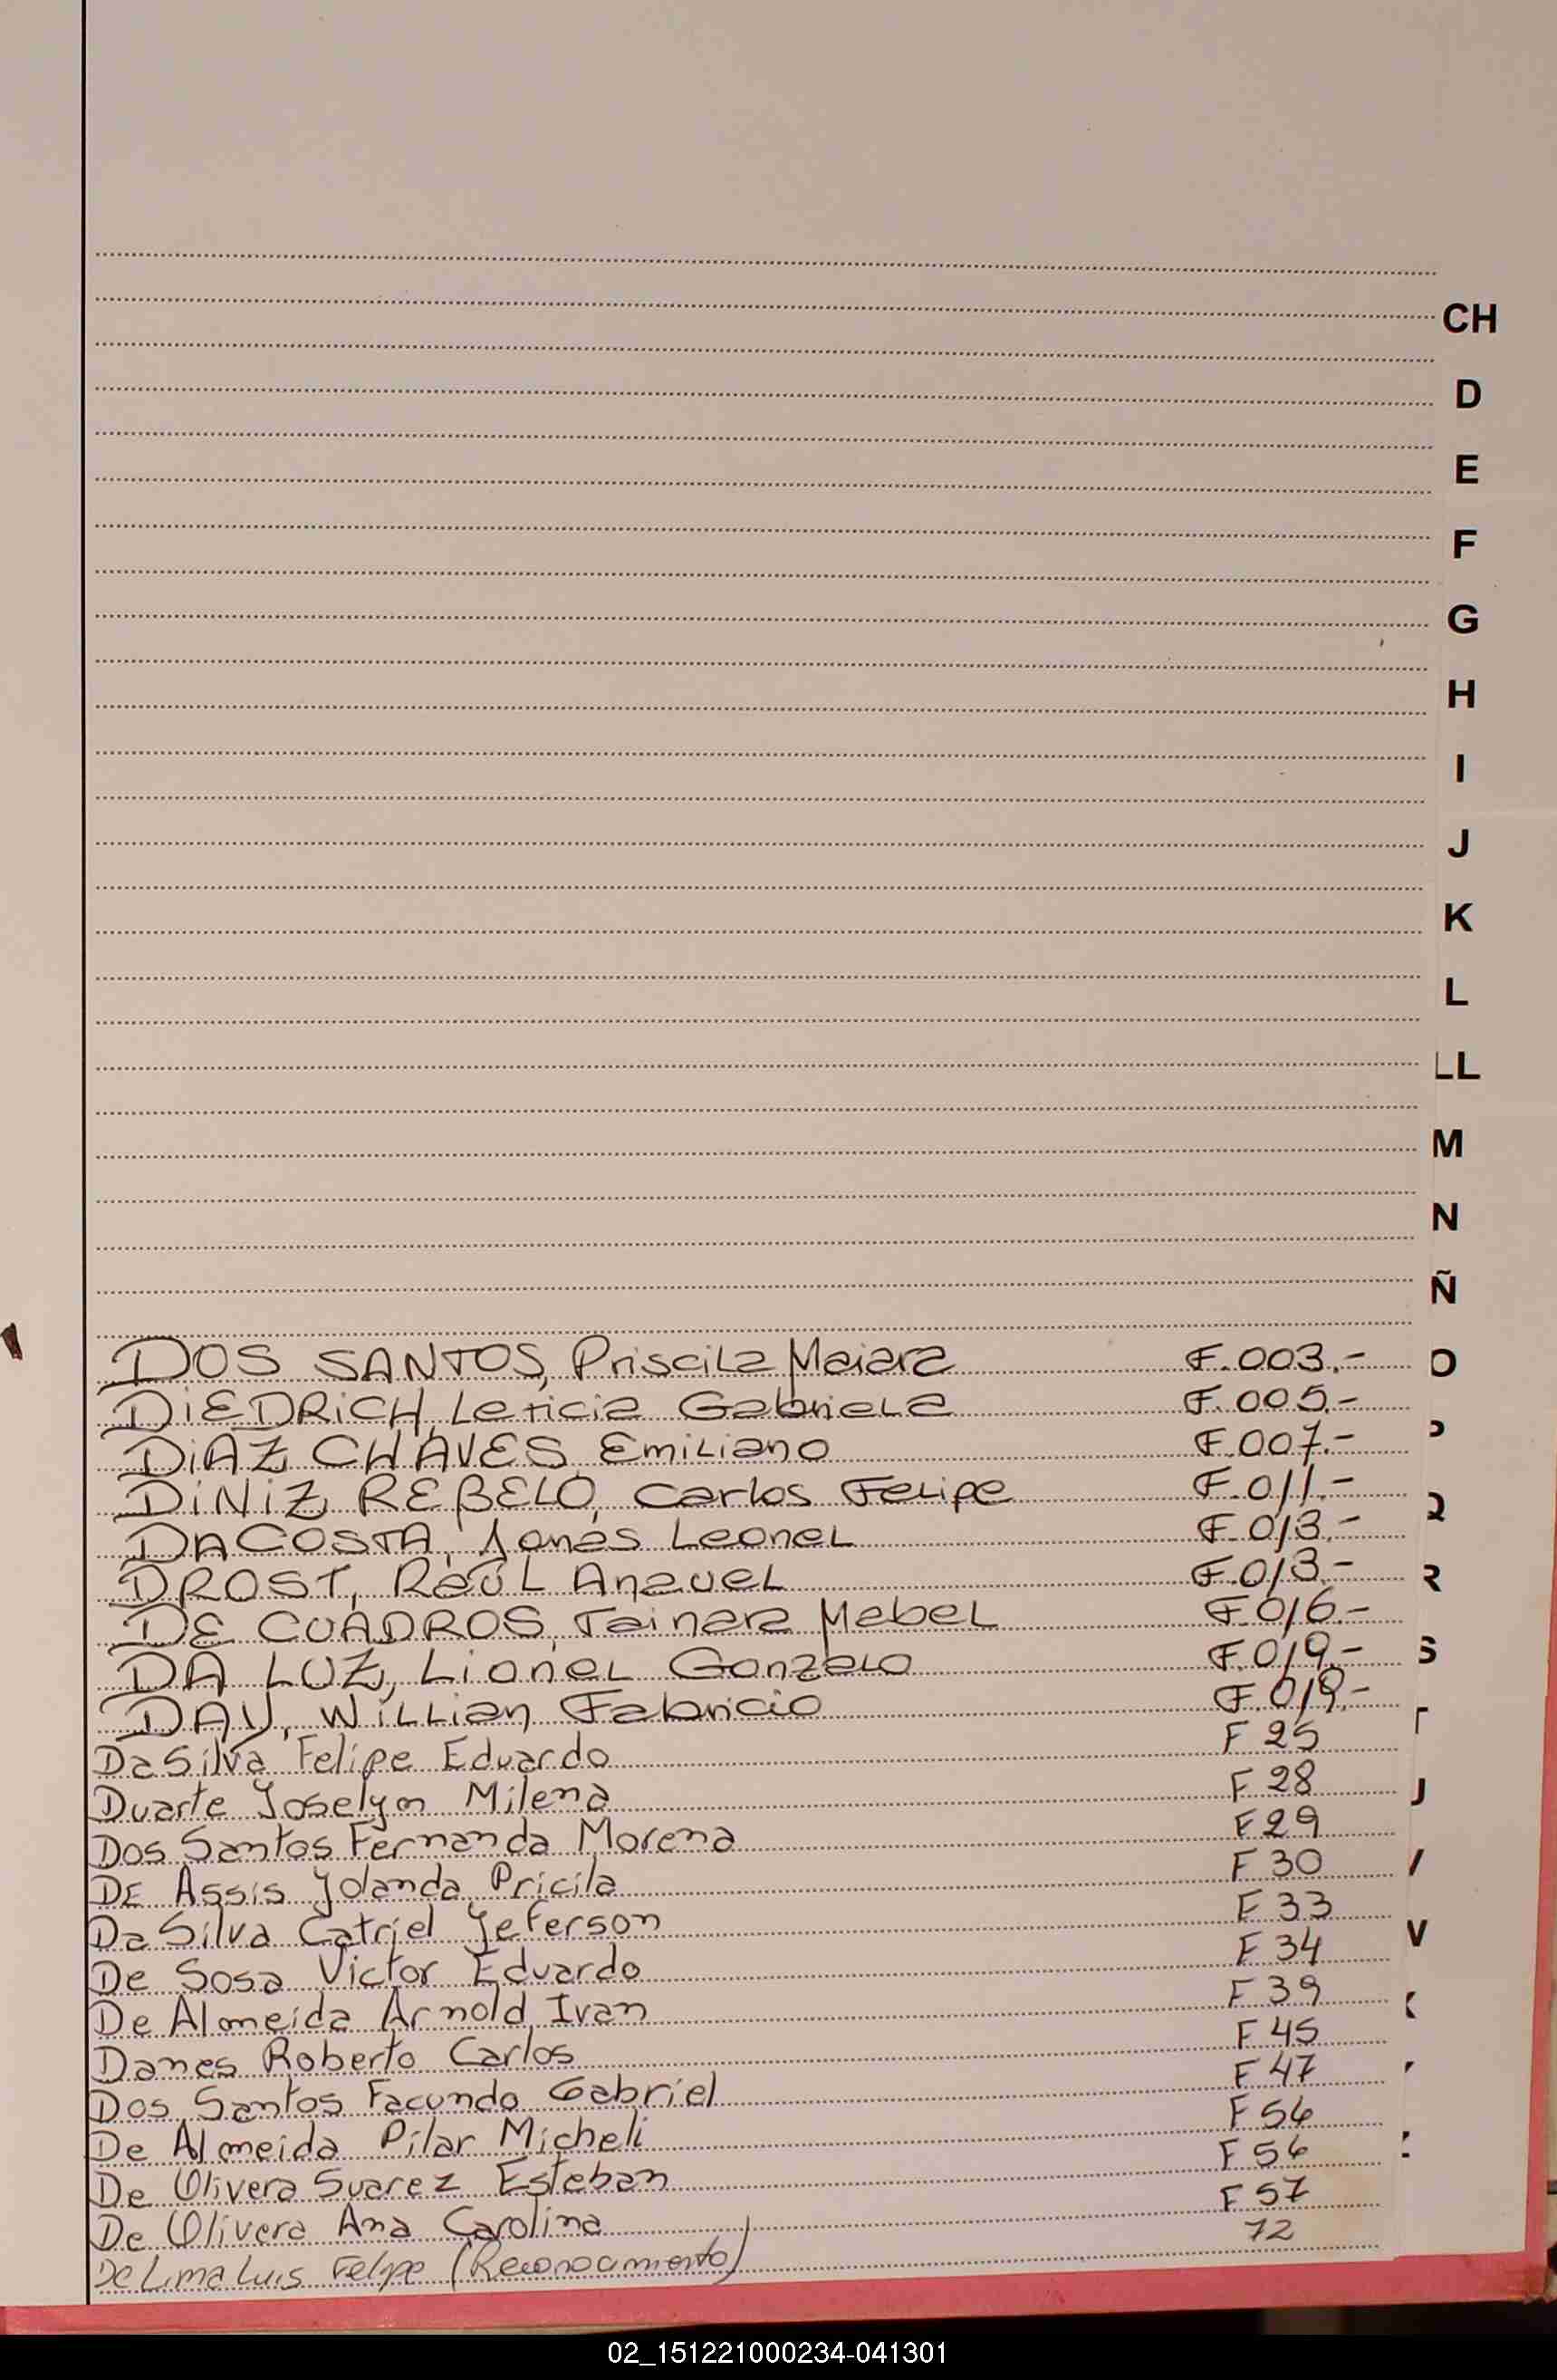 CH
D
E
F
G
H
I
J
K
L
LL
M
N
Ñ
O
P
Q
R
S
T
U
V
DOS SANTOS, Priscila Maiara F.003.-
DiEDRiCH, Leticia Gabriela F.005.-
DiAZ CHAVES, Emiliano F.007.-
DiNiZ REBELO, Carlos Felipe F.011.-
DACOSTA, Jonas Leonel F.013.-
DROST, Raúl Anauel F.013.-
DE CUADROS, Tainara Mabel F.016.-
DA LUZ, Lionel Gonzalo F.019.-
DAY, Willian Fabricio F.019.-
Da Silva Felipe Eduardo F 25
Duarte Joselyn Milena F 28
Dos Santos Fernanda Morena F 29
DE Assis Yolanda Pricila F 30
Da Silva Catriel Jeferson F 33
De Sosa Victor Eduardo F 34
De Almeida Arnold Ivan F 39
Danes Roberto Carlos F 45
Dos Santos Facundo Gabriel F 47
De Almeida Pilar Micheli F 56
De Olivera Suarez Esteban F 56
De Olivera Ana Carolina F 57
De Lima Luis Felipe (Reconocimiento) 72
02_151221000234-041301